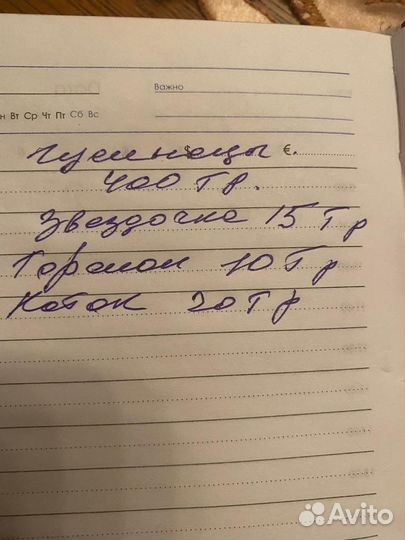 Важно
н Вт Ср Чт Пт Сб Вс
гусиницы €.
400 Тр.
Звездочка 15 Тр
Торсион 10 Тр
Каток 20 Тр
Avito